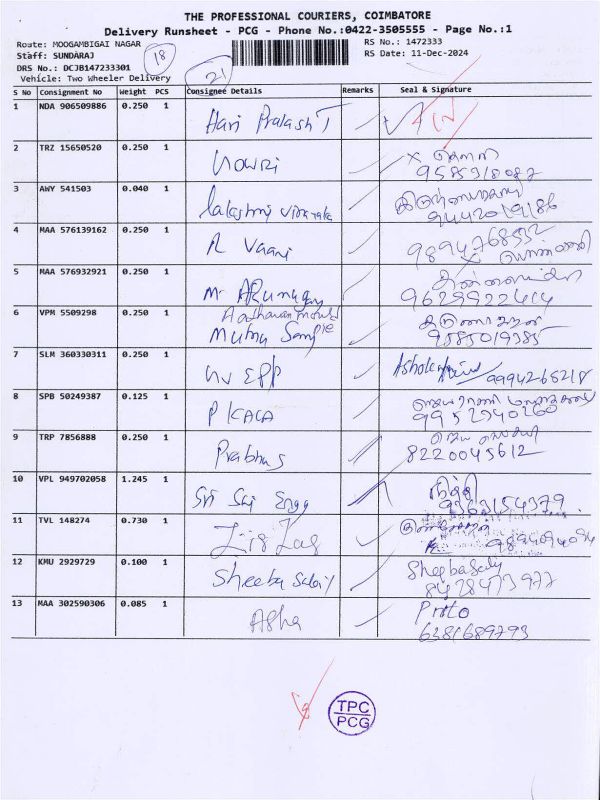 THE PROFESSIONAL COURIERS, COIMBATORE
Delivery Runsheet - PCG - Phone No.:0422-3505555 - Page No.:1
Route: MOOGAMBIGAI NAGAR 18 RS No.: 1472333
Staff: SUNDARAJ RS Date: 11-Dec-2024
DRS No.: DCJB147233301
Vehicle: Two Wheeler Delivery 21
S No Consignment No Weight PCS Consignee Details Remarks Seal & Signature
1 NDA 906509886 0.250 1 Hari Prakash T
2 TRZ 15650520 0.250 1 Gowri
9585318087
3 AWY 541503 0.040 1 lakashmi
9442019186
4 MAA 576139162 0.250 1 R Vaani
9894768532
5 MAA 576932921 0.250 1 Mr ARumugam
9629922414
6 VPM 5509298 0.250 1 Aadhavan Mould
Muthu Sample
9585019385
7 SLM 360330311 0.250 1 9994265218
8 SPB 50249387 0.125 1 P KALA
9952940260
9 TRP 7856888 0.250 1 Prabhu S
8220045612
10 VPL 949702058 1.245 1 Sri Sai Engg
9363154379
11 TVL 148274 0.730 1 Zig Zag
12 KMU 2929729 0.100 1 Sheeba Saley
Sheeba Saley
8428473977
13 MAA 302590306 0.085 1 Asha
6381689793
TPC
PCG